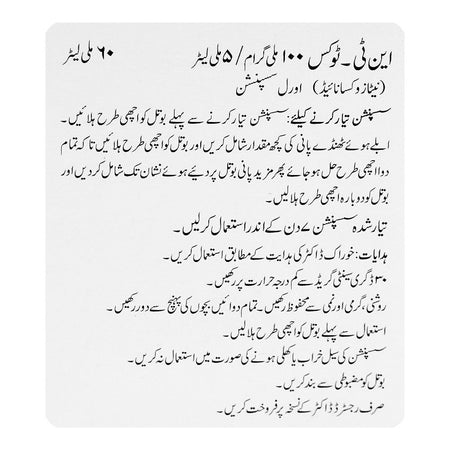 این ٹی ۔ ٹوکس ۱۰۰ ملی گرام / ۵ ملی لیٹر ۶۰ ملی لیٹر
(نیٹازوکسانائیڈ) اورل سسپنشن
سسپنشن تیار کرنے کیلئے: سسپنشن تیار کرنے سے پہلے بوتل کو اچھی طرح ہلائیں۔
ابلے ہوئے ٹھنڈے پانی کی کچھ مقدار شامل کریں اور بوتل کو اچھی طرح ہلائیں تاکہ تمام
دوا اچھی طرح حل ہو جائے پھر مزید پانی بوتل پر دیئے ہوئے نشان تک شامل کر دیں اور
بوتل کو دوبارہ اچھی طرح ہلالیں۔
تیار شدہ سسپنشن ۷ دن کے اندر استعمال کرلیں۔
ہدایات: خوراک ڈاکٹر کی ہدایت کے مطابق استعمال کریں۔
۳۰ ڈگری سینٹی گریڈ سے کم درجہ حرارت پر رکھیں۔
روشنی، گرمی اور نمی سے محفوظ رکھیں۔ تمام دوائیں بچوں کی پہنچ سے دور رکھیں۔
استعمال سے پہلے بوتل کو اچھی طرح ہلالیں۔
سسپنشن کی سیل خراب یا کھلی ہونے کی صورت میں استعمال نہ کریں۔
بوتل کو مضبوطی سے بند کریں۔
صرف رجسٹرڈ ڈاکٹر کے نسخہ پر فروخت کریں۔